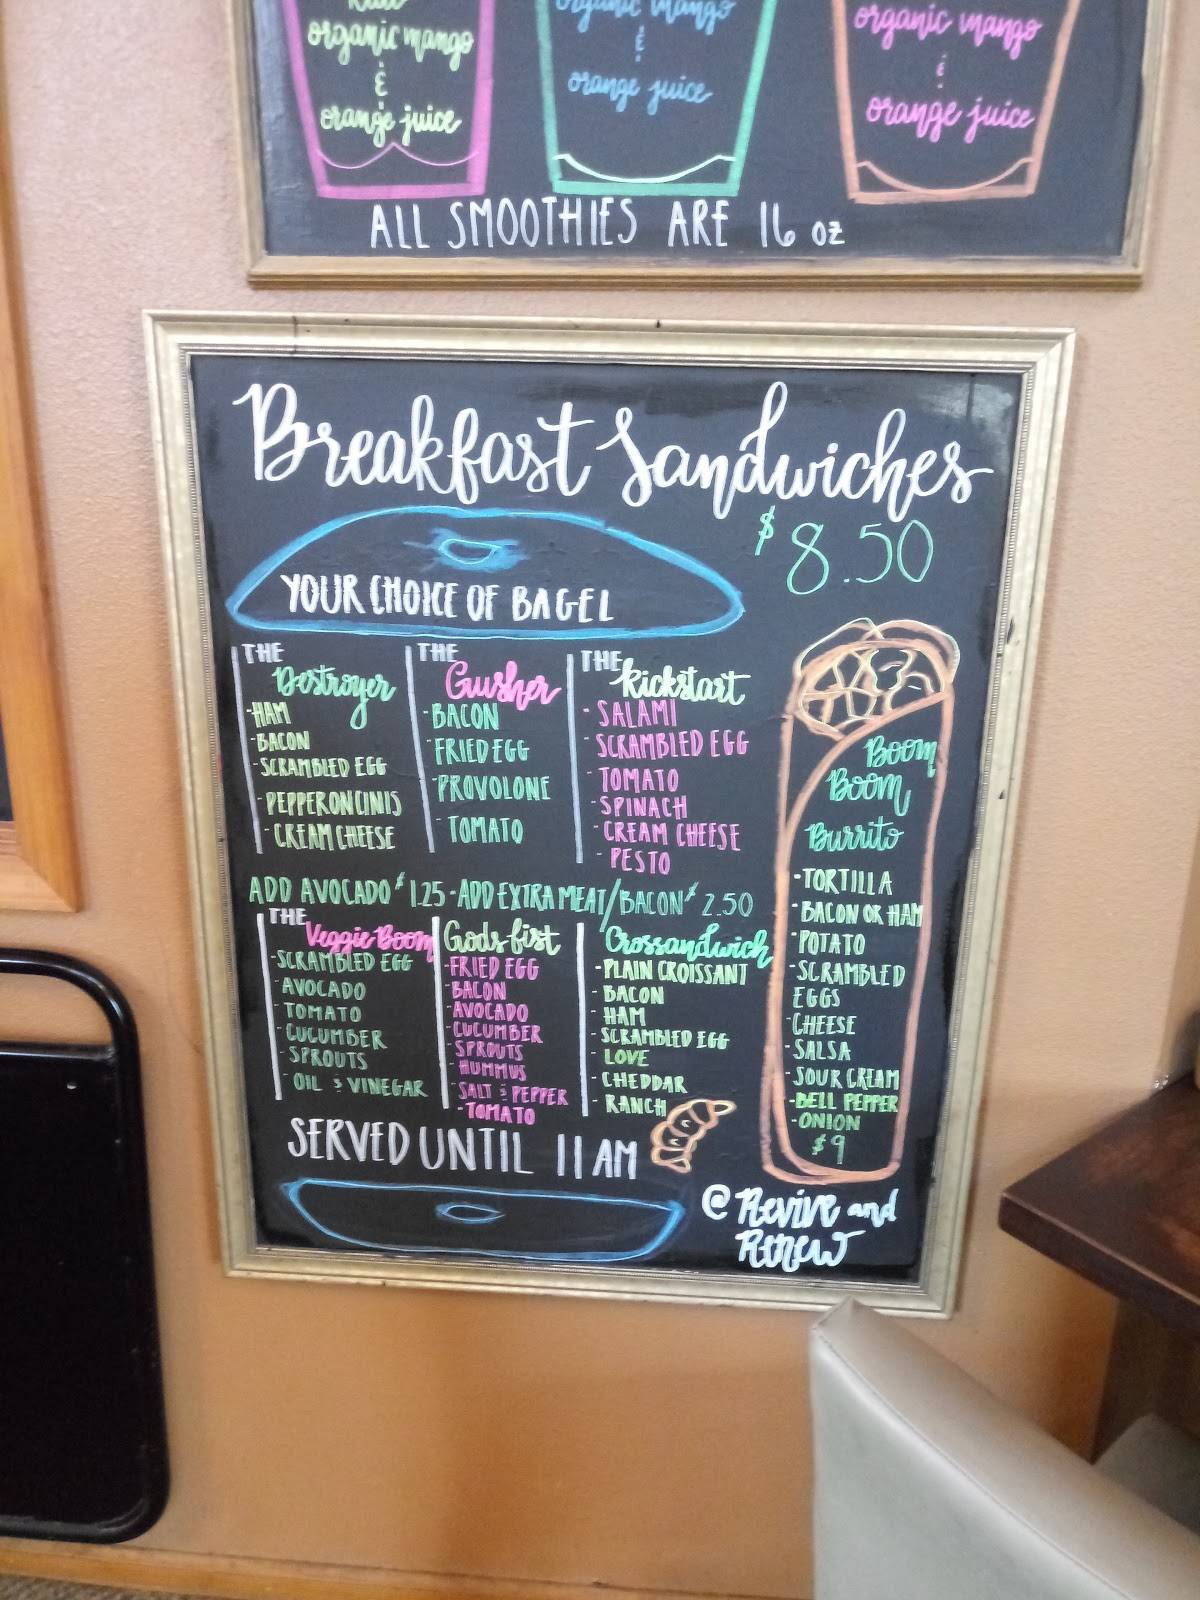 organic mango
&
orange juice
organic mango
&
orange juice
organic mango
&
orange juice
ALL SMOOTHIES ARE 16 oz
Breakfast Sandwiches
$8.50
YOUR CHOICE OF BAGEL
THE
Destroyer
-HAM
-BACON
-SCRAMBLED EGG
-PEPPERONCINIS
-CREAM CHEESE
THE
Gusher
-BACON
-FRIED EGG
-PROVOLONE
-TOMATO
THE
Kickstart
-SALAMI
-SCRAMBLED EGG
-TOMATO
-SPINACH
-CREAM CHEESE
-PESTO
ADD AVOCADO $1.25-ADD EXTRA MEAT/BACON $2.50
THE
Veggie Boom
-SCRAMBLED EGG
-AVOCADO
-TOMATO
-CUCUMBER
-SPROUTS
-OIL & VINEGAR
Gods fist
-FRIED EGG
-BACON
-AVOCADO
-CUCUMBER
-SPROUTS
-HUMMUS
-SALT & PEPPER
-TOMATO
Crossandwich
-PLAIN CROISSANT
-BACON
-HAM
SCRAMBLED EGG
-LOVE
-CHEDDAR
-RANCH
Boom
Boom
Burrito
-TORTILLA
-BACON OR HAM
-POTATO
-SCRAMBLED
EGGS
-CHEESE
-SALSA
-SOUR CREAM
-BELL PEPPER
-ONION
$9
SERVED UNTIL 11 AM
@ Revive and
Renew